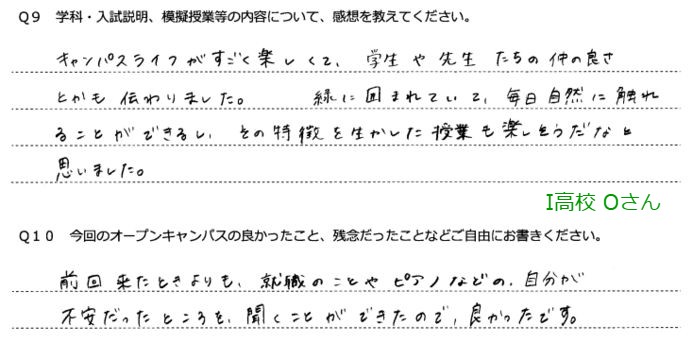 Q9　学科・入試説明、模擬授業等の内容について、感想を教えてください。
キャンパスライフがすごく楽しくて、学生や先生たちの仲の良さ
とかも伝わりました。　緑に囲まれていて、毎日自然に触れ
ることができるし、その特徴を生かした授業も楽しそうだなと
思いました。
I高校 Oさん
Q10　今回のオープンキャンパスの良かったこと、残念だったことなどご自由にお書きください。
前回来たときよりも、就職のことやピアノなどの、自分が
不安だったところを、聞くことができたので、良かったです。